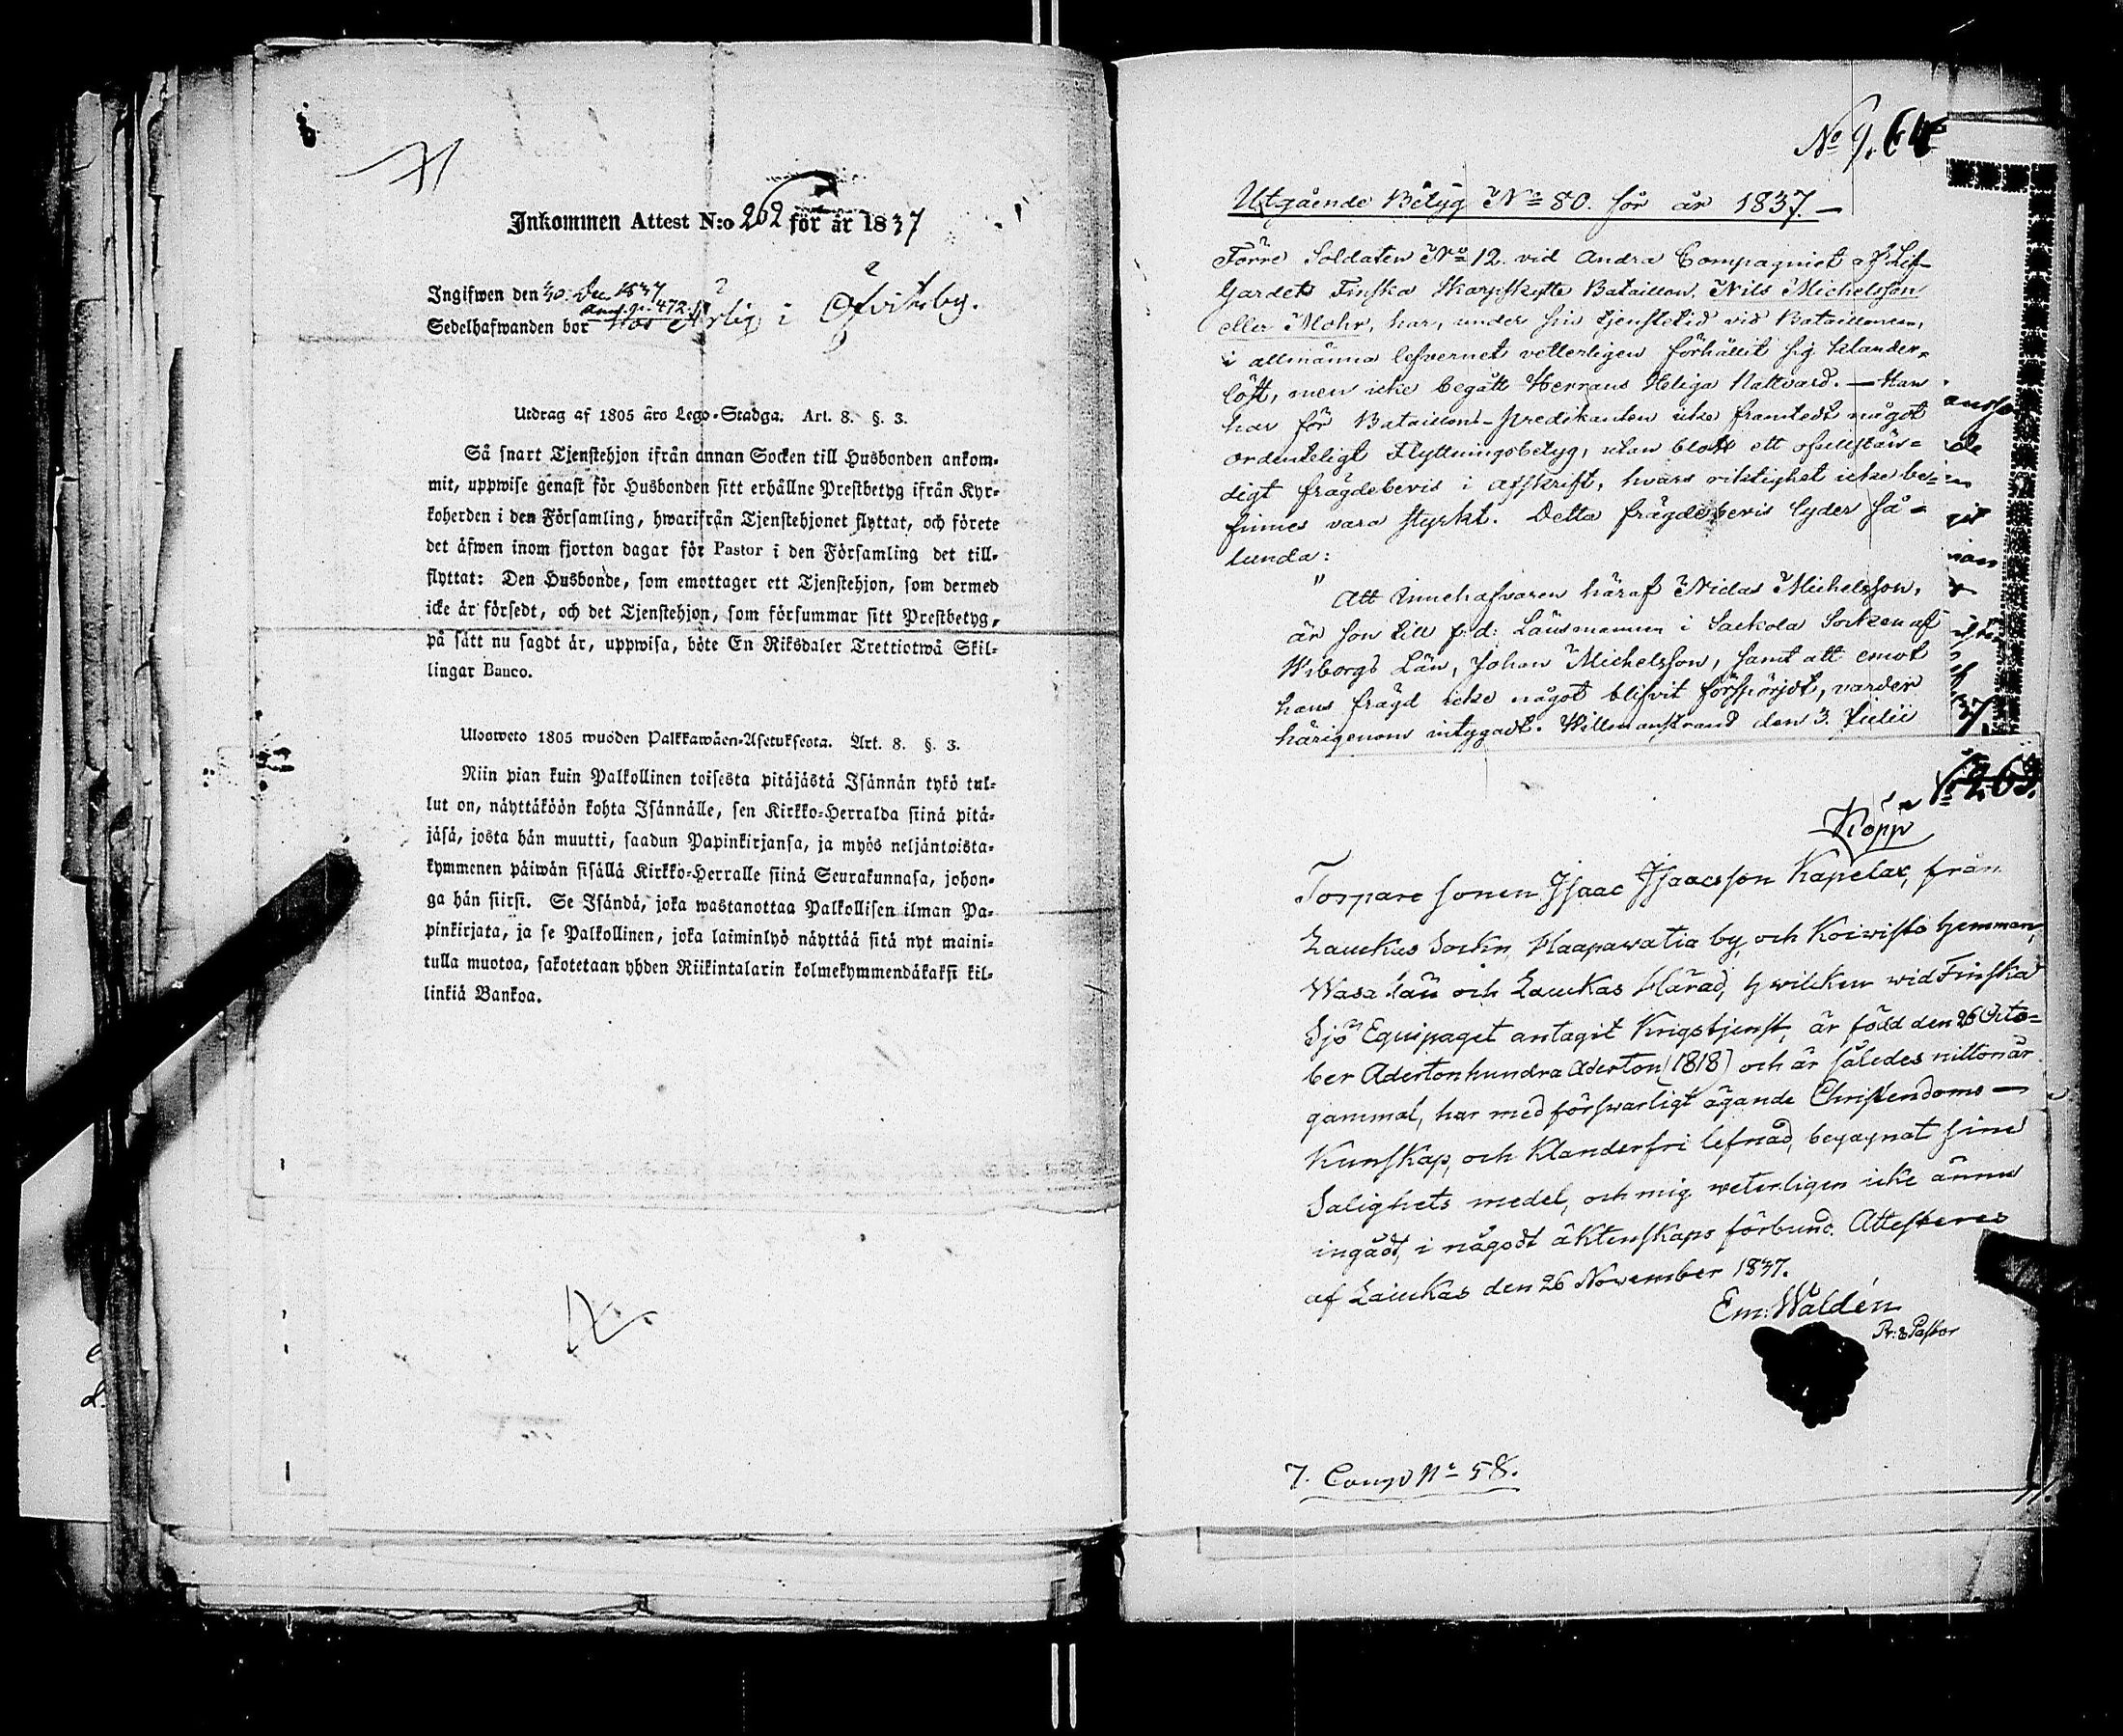 Inkommen Attest N:o 262 för år 1837
Ingifwen den 30. Dec. 1837
Sedelhafwanden bor hos Ärlig i Öfvitsby.
Utdrag af 1805 års Lego-Stadga. Art. 8. §. 3.
Så snart Tjenstehjon ifrån annan Socken till Husbonden ankom-
mit, uppwise genast för Husbonden sitt erhållne Prestbetyg ifrån Kyr-
koherden i den Församling, hwarifrån Tjenstehjonet flyttat, och förete
det äfwen inom fjorton dagar för Pastor i den Församling det till-
flyttat: Den Husbonde, som emottager ett Tjenstehjon, som dermed
icke är försedt, och det Tjenstehjon, som försummar sitt Prestbetyg,
på sätt nu sagdt är, uppwisa, böte En Riksdaler Trettiotwå Skil-
lingar Banco.
Ulosweto 1805 wuoden Palkkawäen-Asetuksesta. Art. 8. §. 3.
Niin pian kuin Palkollinen toisesta pitäjästä Isännän tykö tul-
lut on, näyttäköön kohta Isännälle, sen Kirkko-Herralda siinä pitä-
jäsä, josta hän muutti, saadun Papinkirjansa, ja myös neljäntoista-
kymmenen päiwän sisällä Kirkko-Herralle siinä Seurakunnasa, johon-
ga hän siirsi. Se Isändä, joka wastanottaa Palkollisen ilman Pa-
pinkirjata, ja se Palkollinen, joka laiminlyö näyttää sitä nyt maini-
tulla muotoa, sakotetaan yhden Riikintalarin kolmekymmendäkaksi kil-
linkiä Bankoa.
No 9.
Utgående Betyg No 80. för år 1837.—
Förre Soldaten No 12. vid Andra Compagniet af Lif-
Gardets Finska Skarpskytte Bataillon, Nils Michelsson
eller Mohr, har, under sin tjenstetid vid Bataillonen,
i allmänna lefvernet vetterligen förhållit sig klander-
löst, men icke begått Herrans Heliga Nattvard. — Han
har för Bataillons-Predikanten icke framtedt något
ordenteligt Flyttningsbetyg, utan blott ett ofullstän-
digt frägdebevis i afskrift, hvars riktighet icke be-
finnes vara styrkt. Detta frägdebevis lyder så-
lunda:
"Att Innehafvaren häraf Niclas Michelsson,
är son till f.d. Länsmannen i Sackola Socken af
Wiborgs Län, Johan Michelsson, samt att emot
hans frägd icke något blifvit försporjdt, varder
härigenom intygadt. Willmanstrand den 3. Julii
No 263.
Kopp
Torpare sonen Isaac Isaacsson Kapelax, från
Laukas Sockn, Haapawatia by, och Koivisto hemman,
Wasa län och Laukas Härad, hwilken wid Finska
Sjö Equipaget antagit Krigstjenst, är född den 26 Octo-
ber Adertonhundra Aderton (1818) och är således nitton år
gammal, har med förswarligt ägande Christendoms—
Kunskap, och Klanderfri lefnad, begagnat sine
Salighets medel, och mig weterligen icke ännu
ingådt, i något äktenskaps förbund. Attesteres
af Laukas den 26 November 1837.
Em: Waldén
Pr: & Pastor
7. Comp No 58.